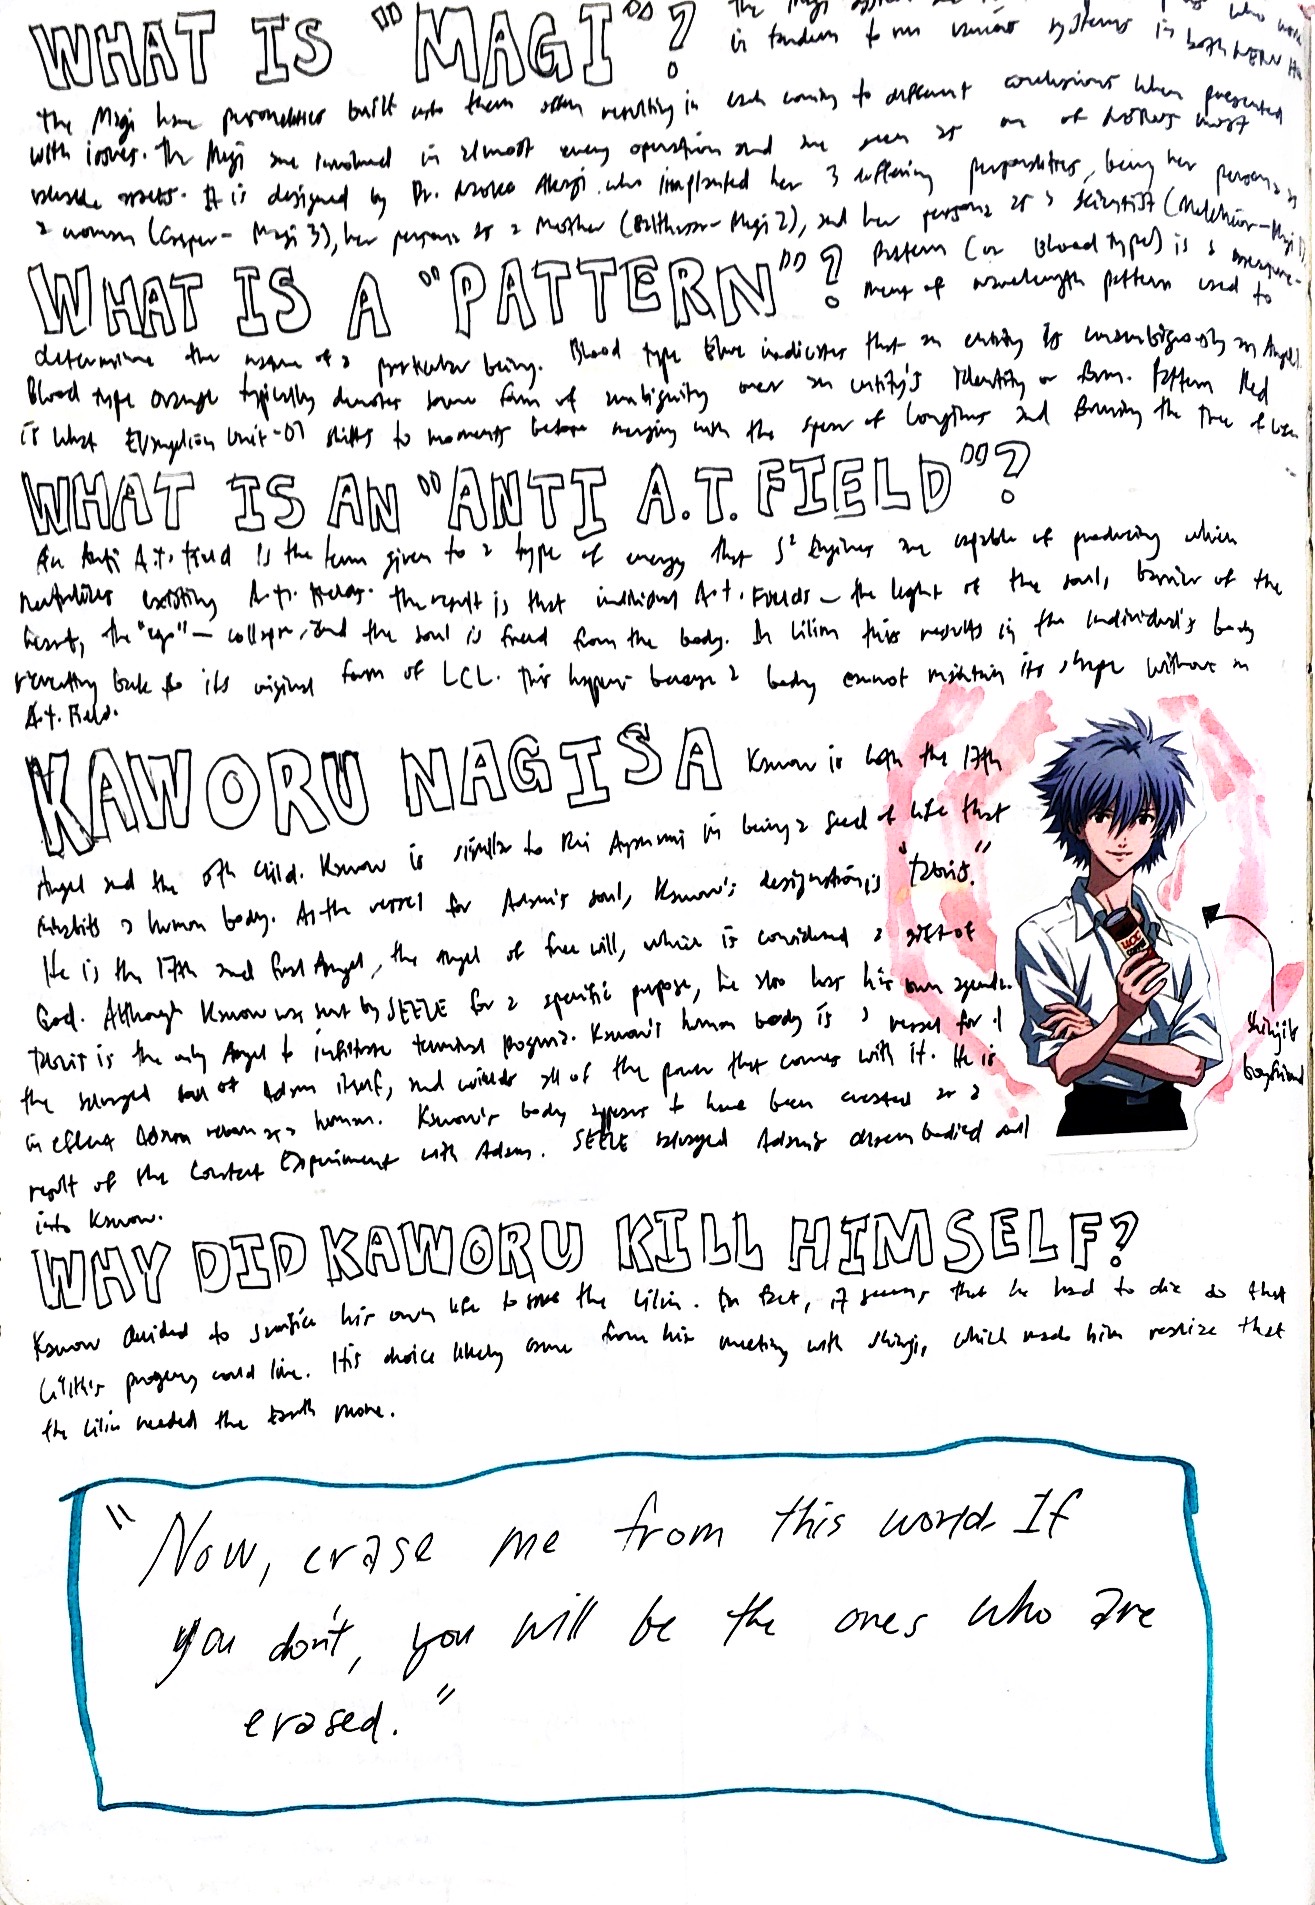 WHAT IS "MAGI"?
in tandem to run various systems in both NERV
The Magi have personalities built into them often resulting in each coming to different conclusions when presented
with issues. The Magi are involved in almost every operation and are seen as one of NERV's most
valuable assets. It is designed by Dr. Naoko Akagi who implanted her 3 differing personalities, being her persona as
a woman (Casper - Magi 3), her persona as a mother (Balthasar - Magi 2), and her persona as a scientist (Melchior - Magi 1).
WHAT IS A "PATTERN"?
Pattern (or Blood type) is a measure-
ment of wavelength pattern used to
determine the nature of a particular being. Blood type Blue indicates that an entity is unambiguously an Angel.
Blood type orange typically denotes some form of ambiguity over an entity's identity or form. Pattern Red
is what Evangelion Unit-01 shifts to moments before merging with the spear of Longinus and forming the Tree of Life.
WHAT IS AN "ANTI A.T. FIELD"?
An Anti A.T. Field is the term given to a type of energy that S² Engines are capable of producing which
neutralizes existing A.T. Fields. The result is that individual A.T. Fields — the light of the soul, barrier of the
heart, the "ego" — collapse, and the soul is freed from the body. In Lilim this results in the individual's body
reverting back to its original form of LCL. This happens because a body cannot maintain its shape without an
A.T. Field.
KAWORU NAGISA
Kaworu is both the 17th
Angel and the 5th Child. Kaworu is similar to Rei Ayanami in being a seed of life that
inhabits a human body. As the vessel for Adam's soul, Kaworu's designation is "Tabris."
He is the 17th and final Angel, the angel of free will, which is considered a gift of
God. Although Kaworu was sent by SEELE for a specific purpose, he also has his own agenda.
Tabris is the only Angel to infiltrate terminal dogma. Kaworu's human body is a vessel for
the salvaged soul of Adam itself, and wields all of the power that comes with it. He is
in effect Adam reborn as a human. Kaworu's body appears to have been created as a
result of the Contact Experiment with Adam. SEELE salvaged Adam's disembodied soul
into Kaworu.
UCC
shinji's
boyfriend
WHY DID KAWORU KILL HIMSELF?
Kaworu decided to sacrifice his own life to save the Lilim. In fact, it seems that he had to die so that
Lilith's progeny could live. His choice likely came from his meeting with Shinji, which made him realize that
the Lilim needed the Earth more.
"Now, erase me from this world. If
you don't, you will be the ones who are
erased."